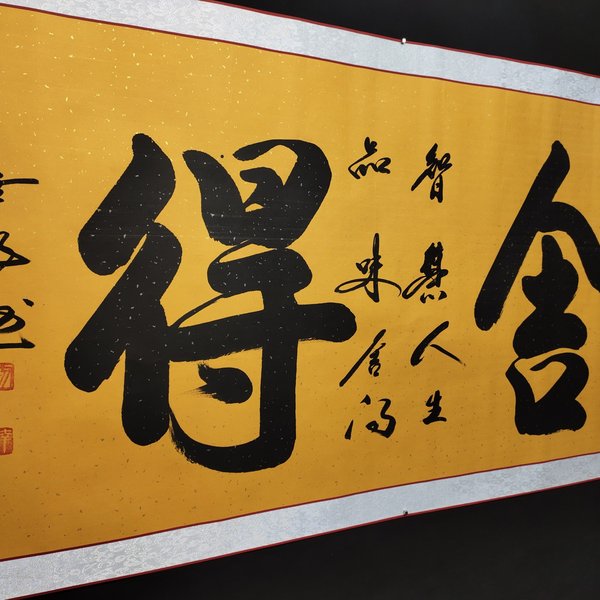 舍
智慧人生
品味舍得
得
书